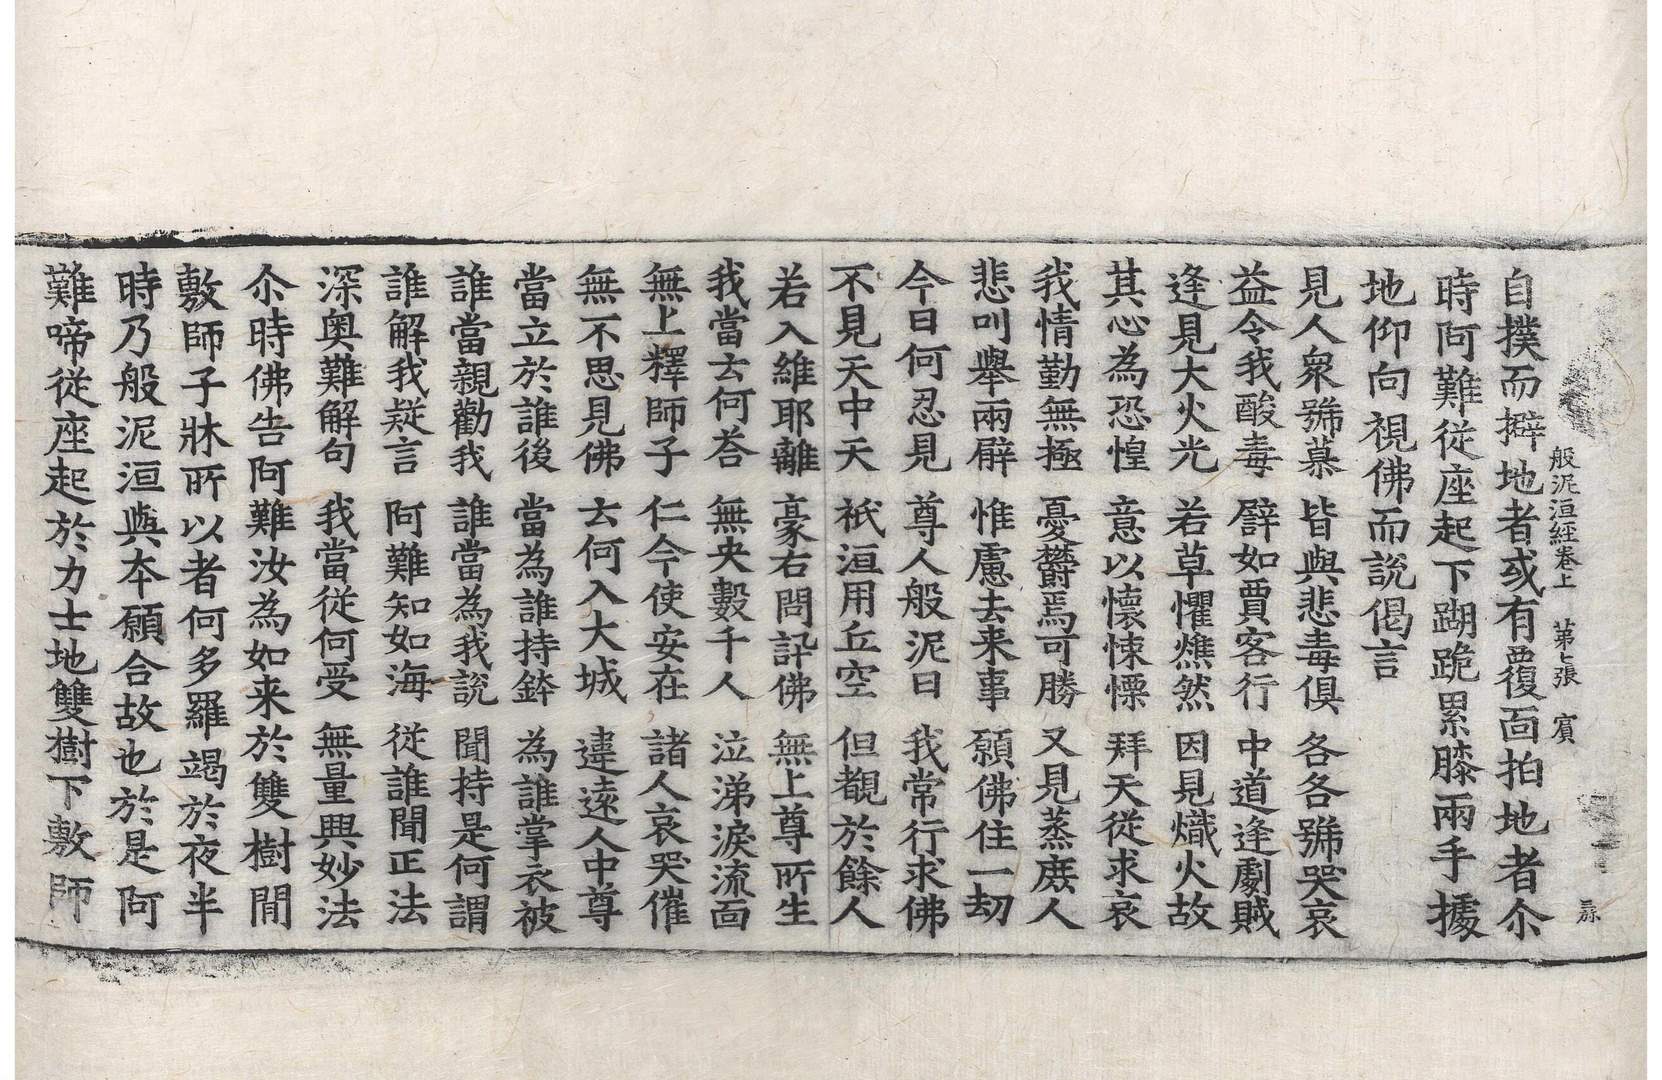 般泥洹經卷上　第七張　賓
自撲而擗地者或有覆面拍地者尒
時阿難從座起下蹋跪累膝兩手據
地仰向視佛而說偈言
見人衆㗸慕　皆與悲毒俱　各各㗸哭哀
益令我酸毒　譬如賈客行　中道逢劇賊
逢見大火光　若草懼燋然　因見熾火故
其心為恐惶　意以懷悚慄　拜天從求哀
我情勤無極　憂欝焉可勝　又見蒸庶人
悲叫舉兩臂　惟慮去来事　願佛住一劫
今日何忍見　尊人般泥曰　我常行求佛
不見天中天　祇洹用丘空　但覩於餘人
若入維耶離　豪右問訊佛　無上尊所生
我當去何荅　無央數千人　泣涕淚流面
無上釋師子　仁今使安在　諸人哀哭催
無不思見佛　去何入大城　違遠人中尊
當立於誰後　當為誰持鉢　為誰掌衣被
誰當親勸我　誰當為我說　聞持是何謂
誰解我疑言　阿難知如海　從誰聞正法
深奥難解句　我當從何受　無量興妙法
尒時佛告阿難汝為如来於雙樹間
敷師子牀所以者何多羅竭於夜半
時乃般泥洹與本願合故也於是阿
難啼從座起於力士地雙樹下敷師